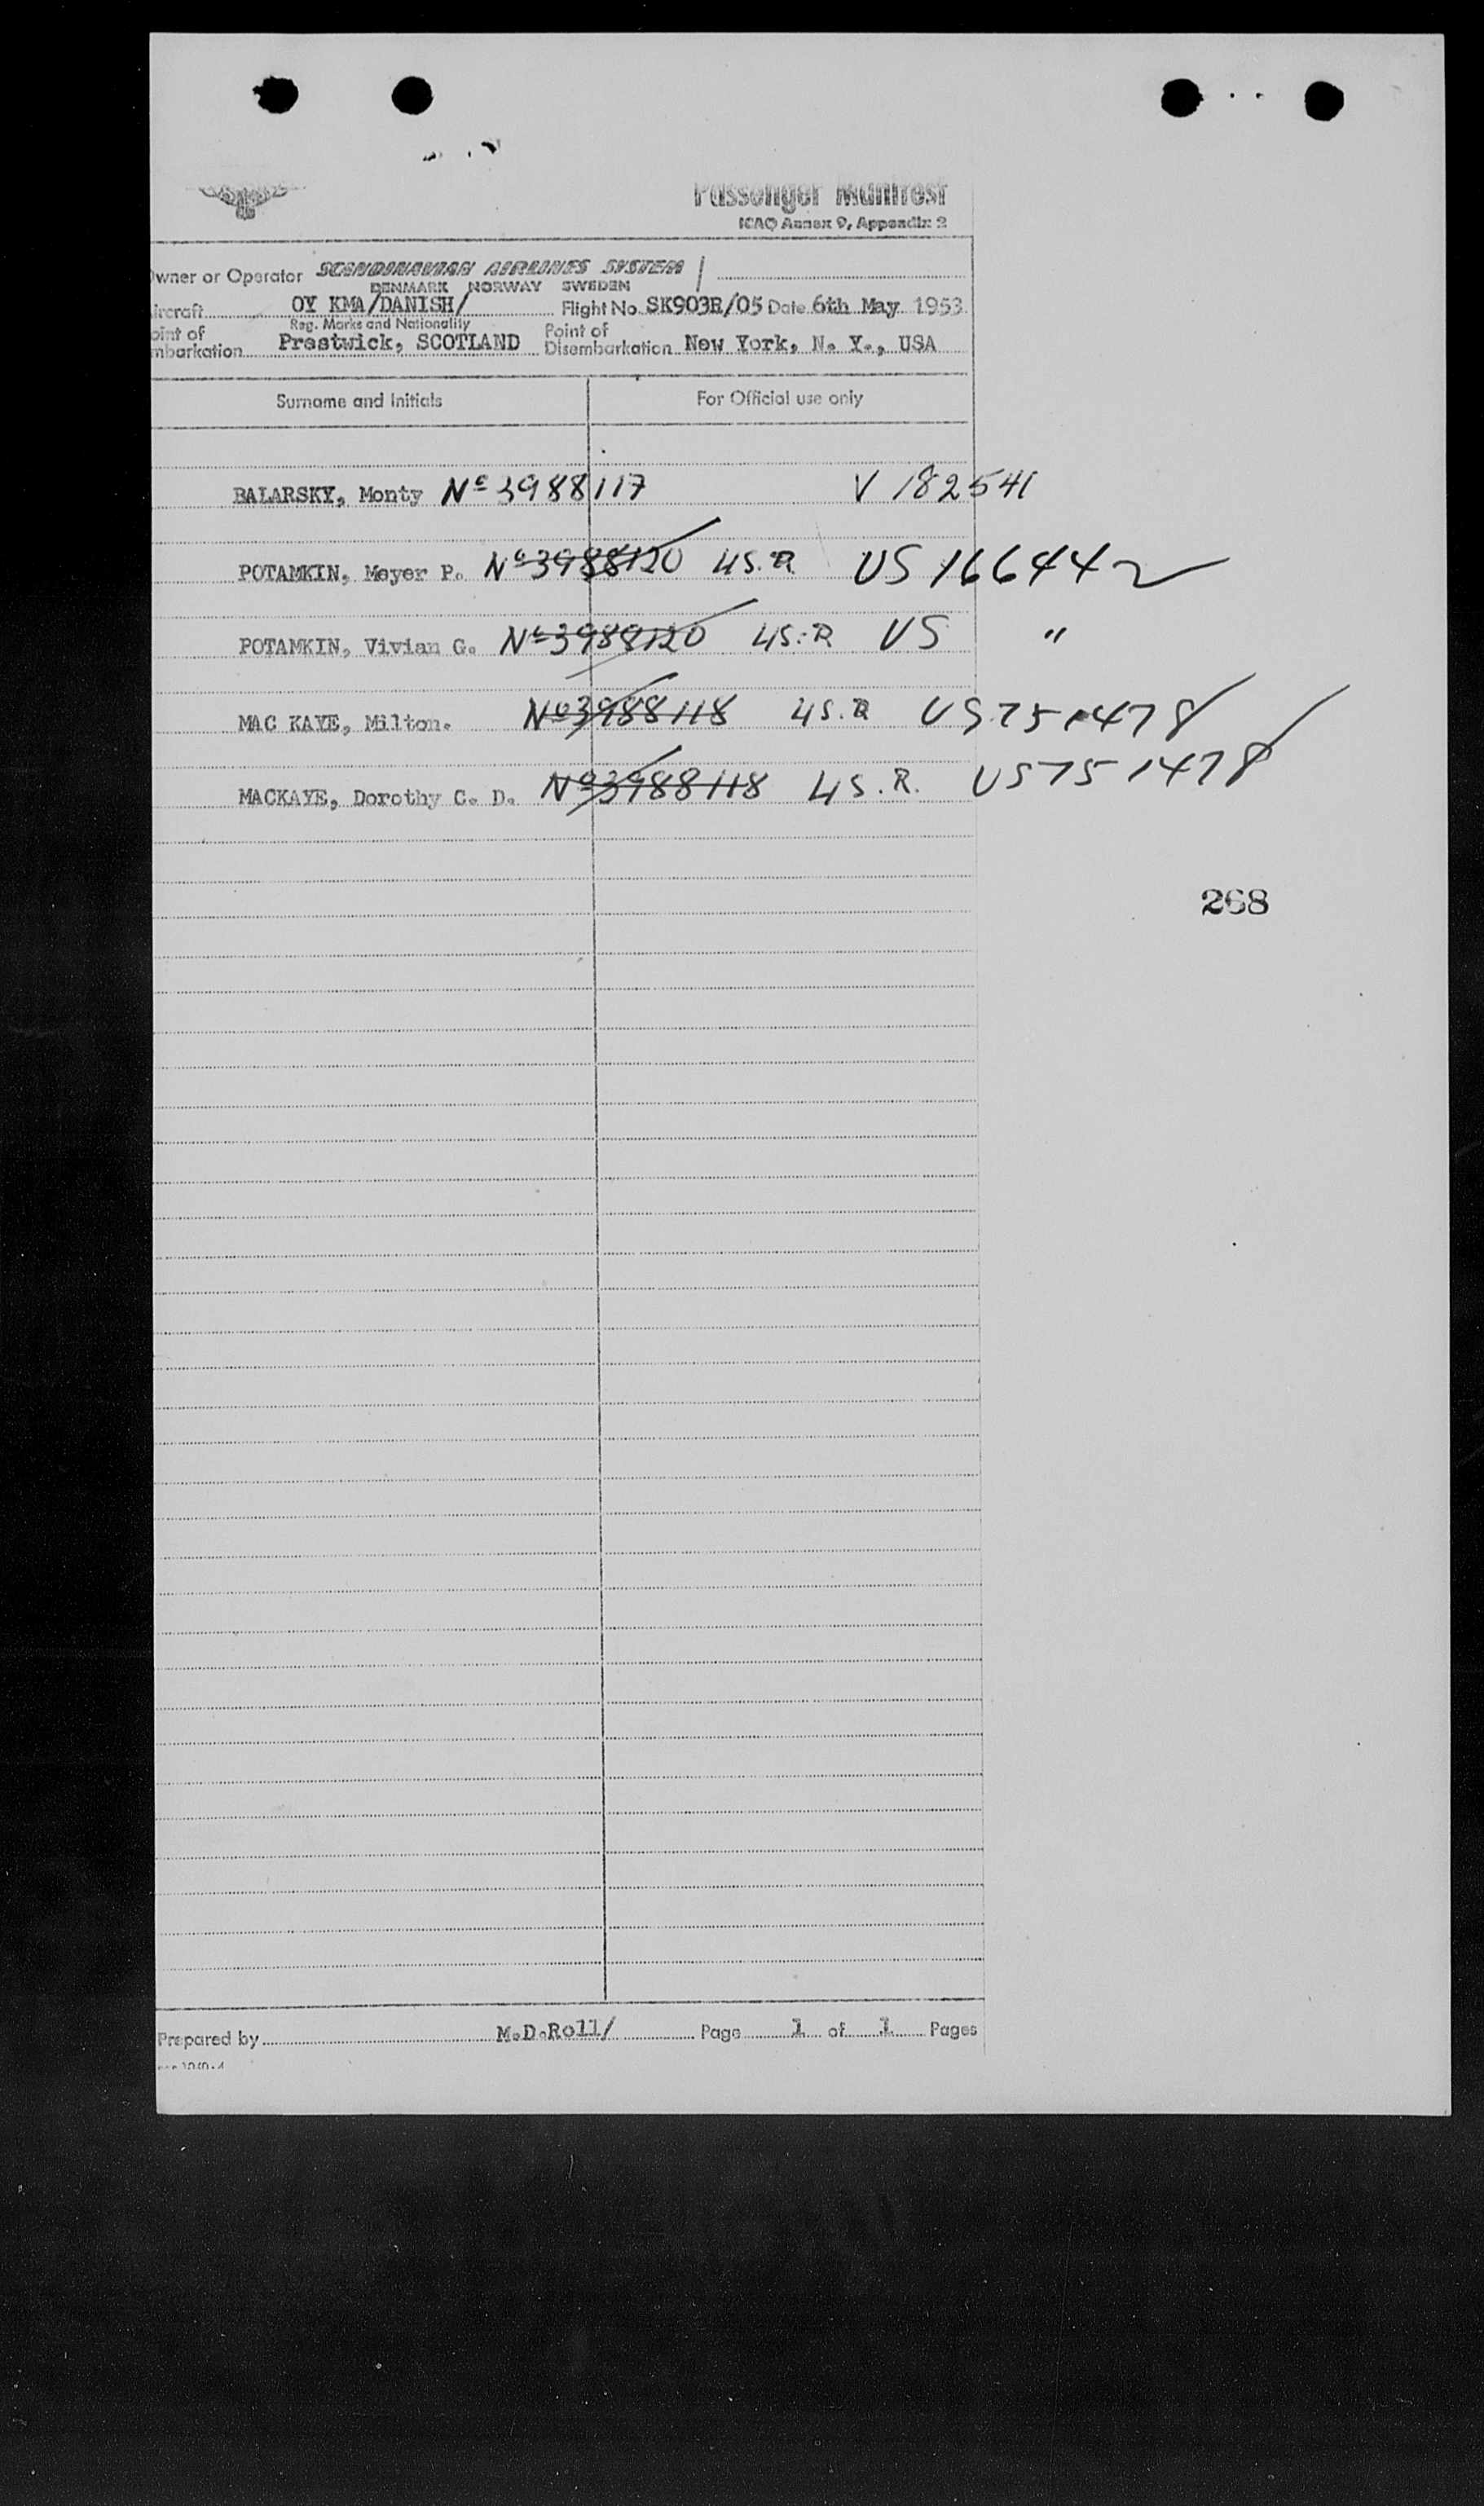 Passenger Manifest
ICAO Annex 9, Appendix 2
Owner or Operator SCANDINAVIAN AIRLINES SYSTEM /
DENMARK NORWAY SWEDEN
Aircraft OY KMA/DANISH/ Flight No. SK903R/05 Date 6th May 1953
Reg. Marks and Nationality
Point of Embarkation Prestwick, SCOTLAND Point of Disembarkation New York, N. Y., USA
Surname and Initials For Official use only
BALARSKY, Monty Nº 3988117 V 182541
POTAMKIN, Meyer P. Nº 3988120 US.R US 166442
POTAMKIN, Vivian G. Nº 3988120 US.R US "
MAC KAYE, Milton. Nº 3988118 US.R US 751478
MACKAYE, Dorothy C. D. Nº 3988118 US.R. US 751478
268
Prepared by M.D.Roll/ Page 1 of 1 Pages